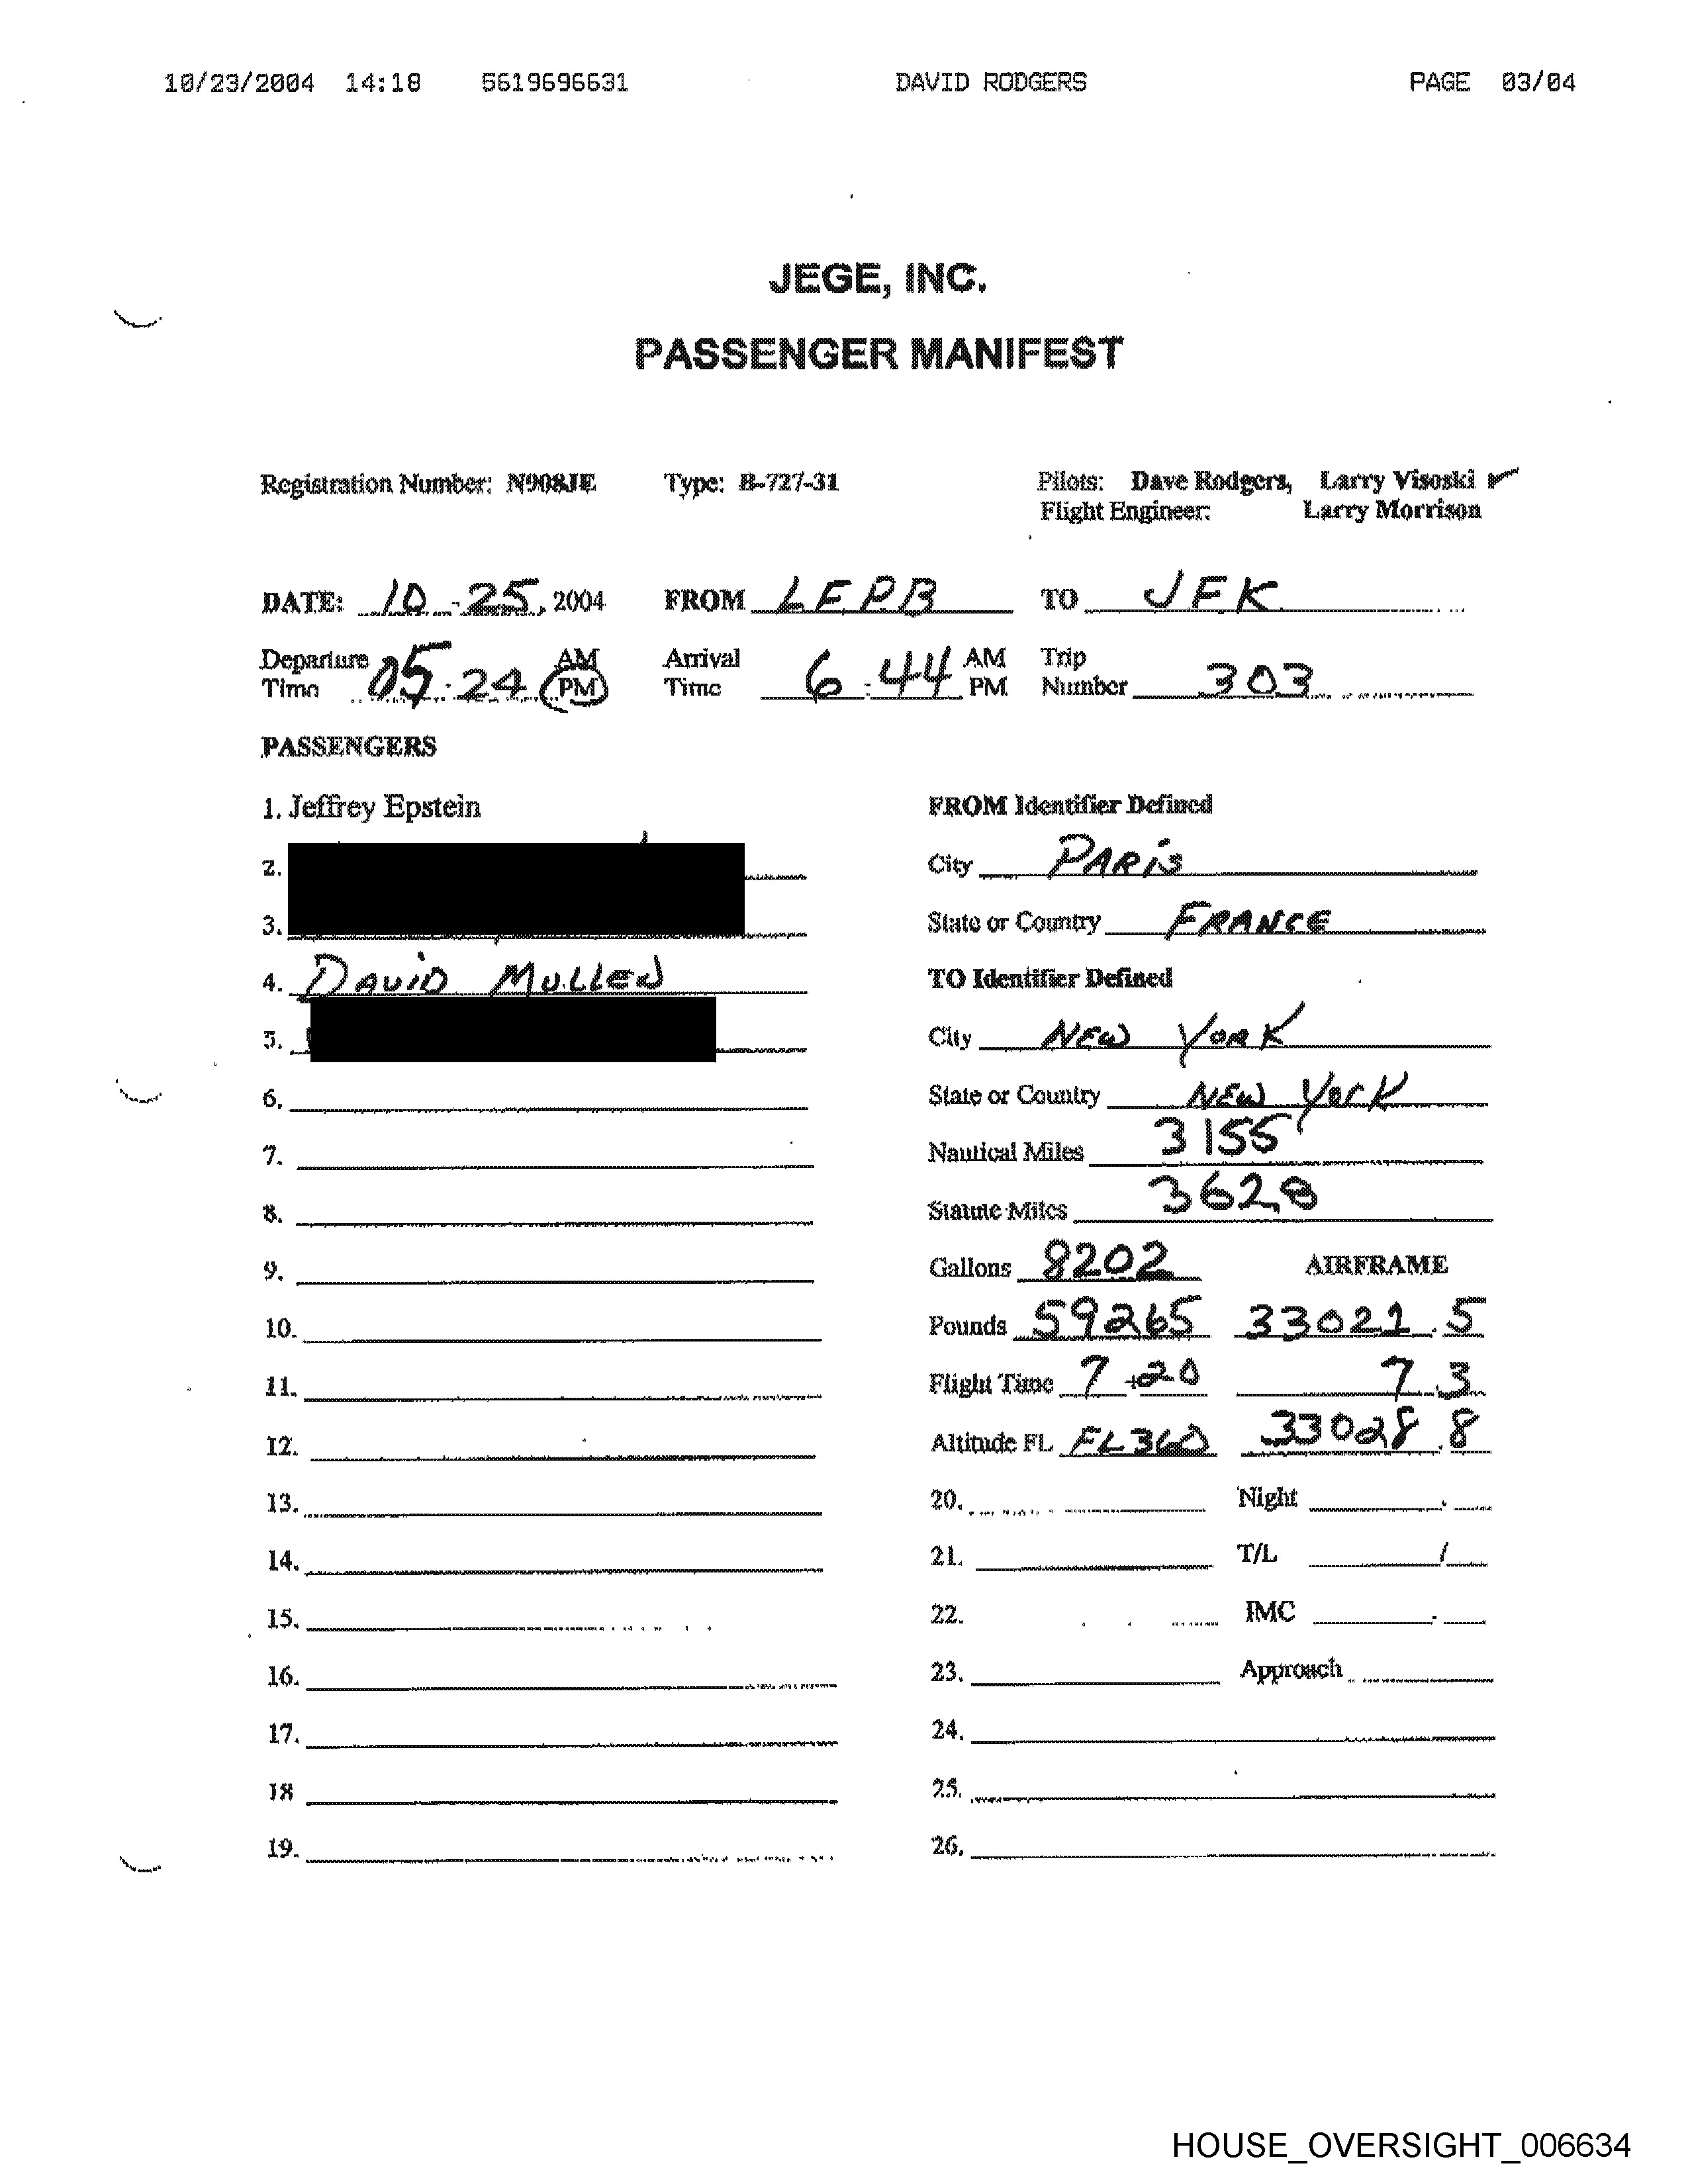 10/23/2004 14:18 5619696631 DAVID RODGERS PAGE 03/04
JEGE, INC.
PASSENGER MANIFEST
Registration Number: N908JE Type: B-727-31 Pilots: Dave Rodgers, Larry Visoski
Flight Engineer: Larry Morrison
DATE: 10-25, 2004 FROM LFPB TO JFK
Departure Time 05:24 AM PM Arrival Time 6:44 AM PM Trip Number 303
PASSENGERS
1. Jeffrey Epstein FROM Identifier Defined
2. City PARIS
3. State or Country FRANCE
4. DAVID MULLEN TO Identifier Defined
5. City NEW YORK
6. State or Country NEW YORK
7. Nautical Miles 3155
8. Statute Miles 3628
9. Gallons 8202 AIRFRAME
10. Pounds 59265 33021.5
11. Flight Time 7+20 7.3
12. Altitude FL FL360 33028.8
13. 20. Night
14. 21. T/L /
15. 22. IMC
16. 23. Approach
17. 24.
18 25.
19. 26.
HOUSE_OVERSIGHT_006634